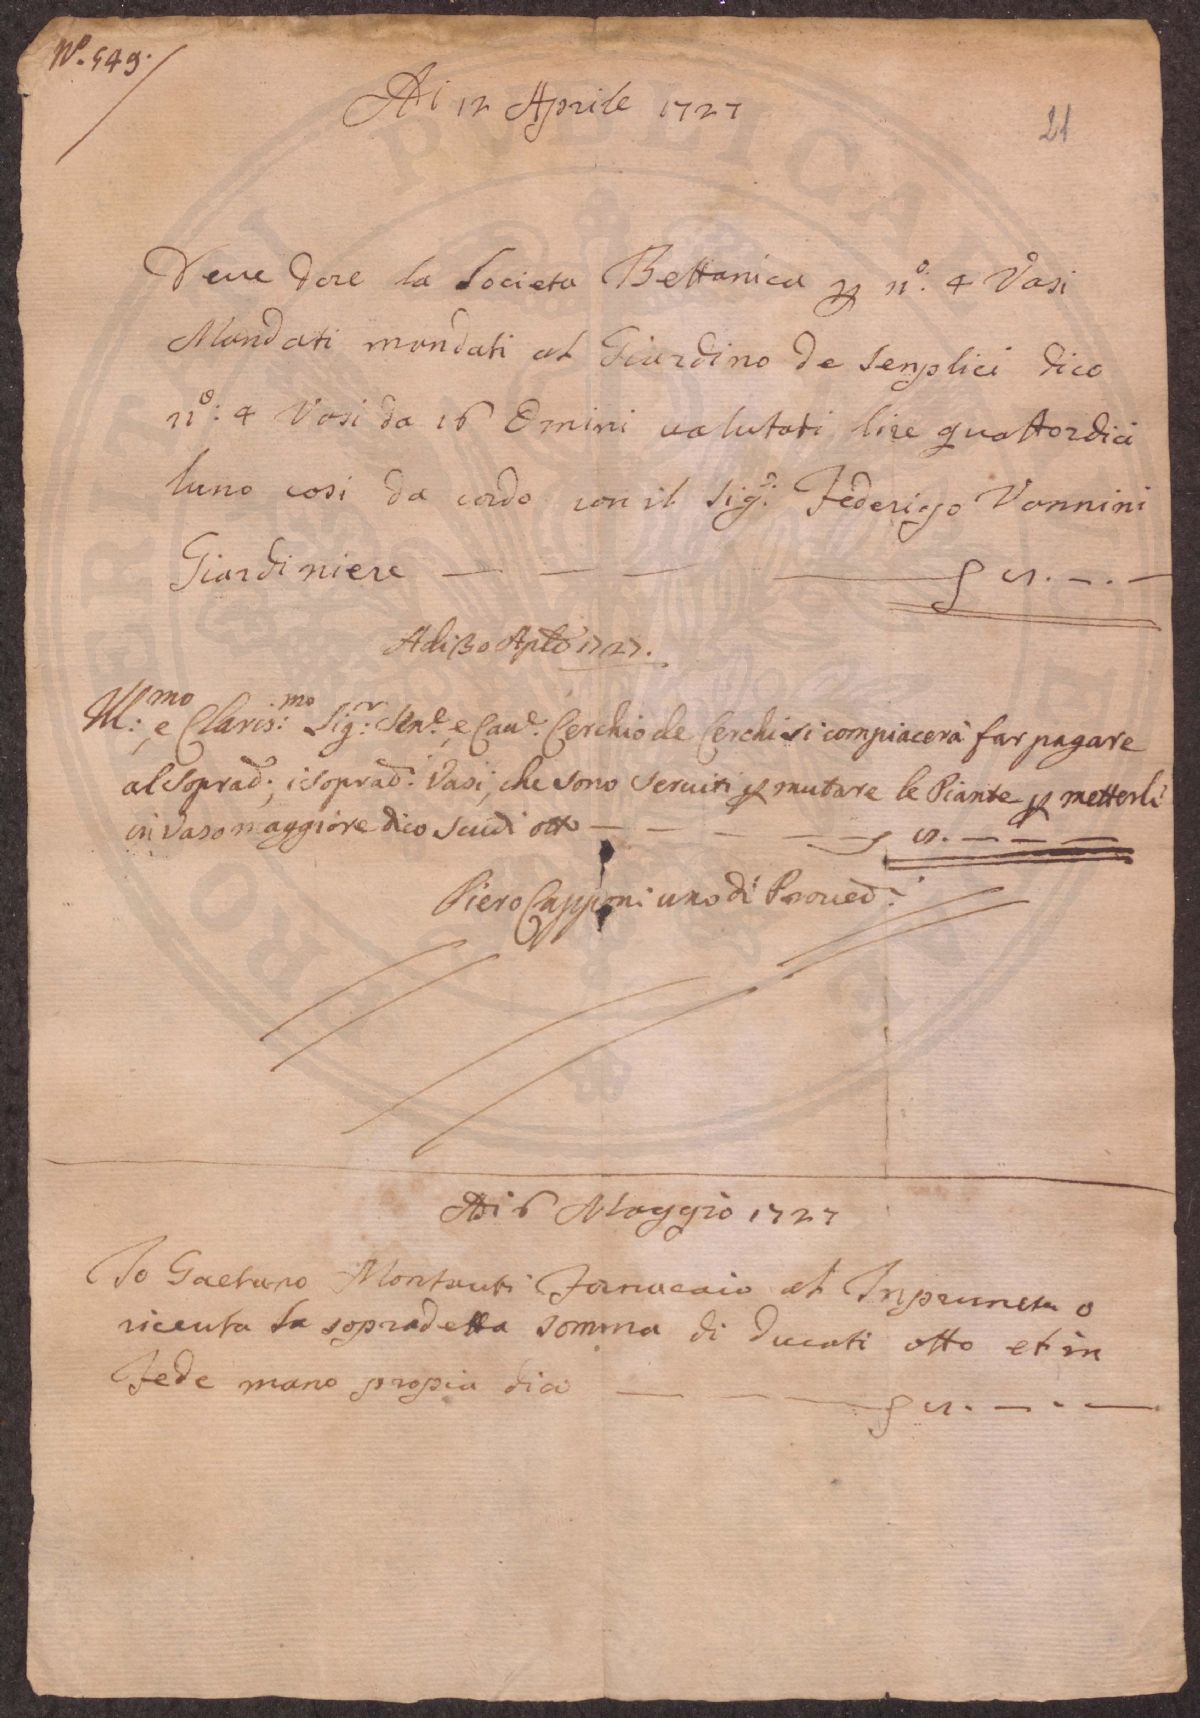 Nº. 549.
Ai 12 Aprile 1727
21
Deve dare la Società Bottanica p nº: 4 Vasi
Mandati mandati al Giardino de Senplici dico
nº: 4 Vasi da 16 Omini valutati lire quattordici
luno cosi da cordo con il Sig.: Federigo Vannini
Giardiniere — — — —
Adi 30 Aple 1727.
Ill:mo e Claris:mo Sig:r Sen.e e Cau.e Cerchio de Cerchi si compiacerà far pagare
al soprad:, i soprad: Vasi, che sono seruiti p mutare le Piante p metterli
in vaso maggiore dico scudi otto — — — —
Piero Capponi uno di Proued:i
Adi 6 Maggio 1727
Io Gaetano Montauti Fornacaio al Inpruneta o
riceuta la sopradetta somma di ducati otto et in
Fede mano propia dico — — —